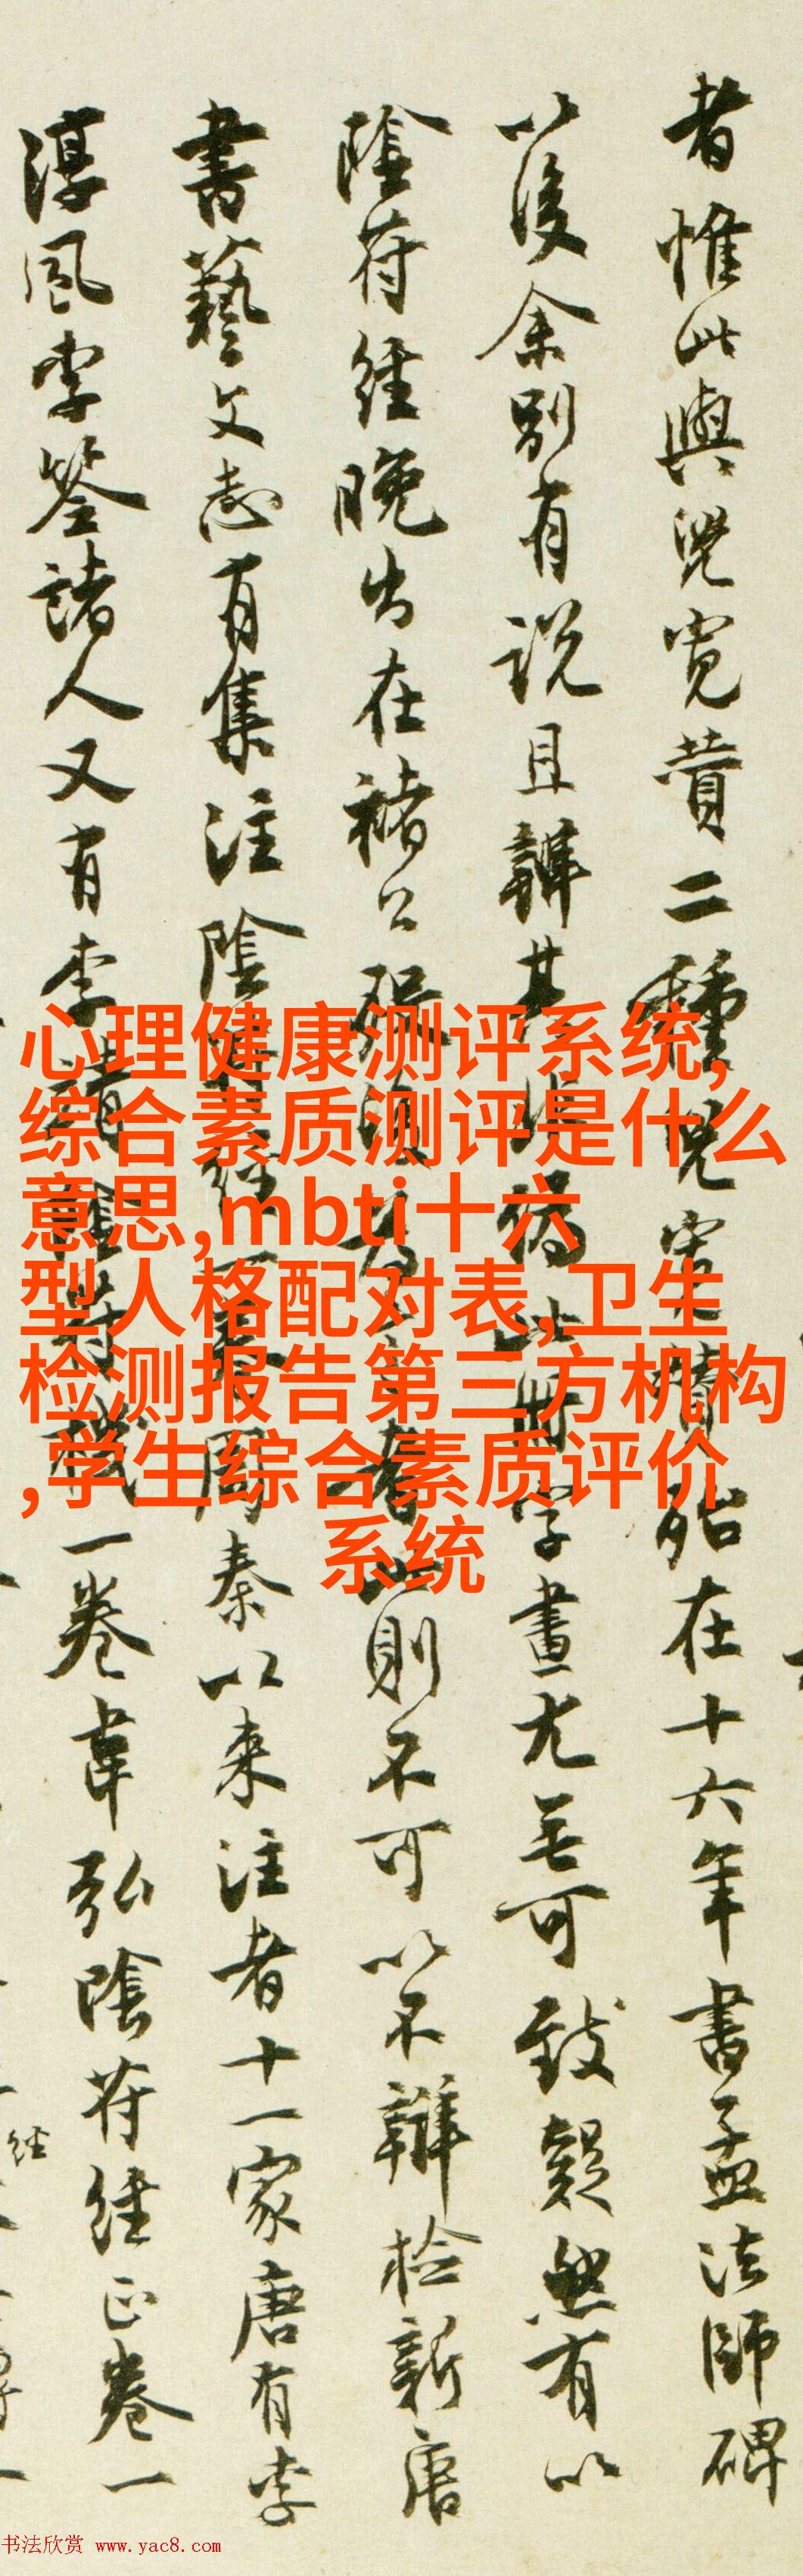 者惟此與兒寬贊二種兒寬贊始在十六年書孟法師碑
以後余別有說且辯其非偽此冊字畫尤無可致疑然有以
陰符經晚出在褚公
者此則不可以不辯檢新唐
書藝文志有集注陰符經一卷
周秦以來注者十一家唐有李
淳風李筌諸人又有李
一卷韋弘陰符經正卷一
心理健康测评系统,
综合素质测评是什么
意思,mbti十六
型人格配对表,卫生
检测报告第三方机构
,学生综合素质评价
系统
经
书法欣赏 www.yac8.com